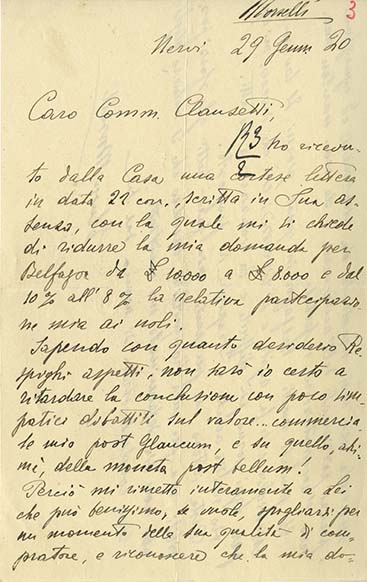 Morselli
3
Nervi 29 Genn. 20
Caro Comm. Clausetti,
R3
2
ho ricevu-
to dalla Casa una cortese lettera
in data 22 corr., scritta in Sua as-
senza, con la quale mi si chiede
di ridurre la mia domanda per
Belfagor da 10.000 a 8.000 e dal
10% all'8% la relativa partecipazio-
ne mia ai noli.
Sapendo con quanto desiderio Re-
spighi aspetti, non sarò io certo a
ritardare la conclusione con poco sim-
patici dibattiti sul valore... commercia-
le mio post Glaucum, e su quello, ahi-
mè, della moneta post bellum!
Perciò mi rimetto interamente a Lei
che può benissimo, se vuole, spogliarsi per
un momento della sua qualità di com-
pratore, e riconoscere che la mia do-